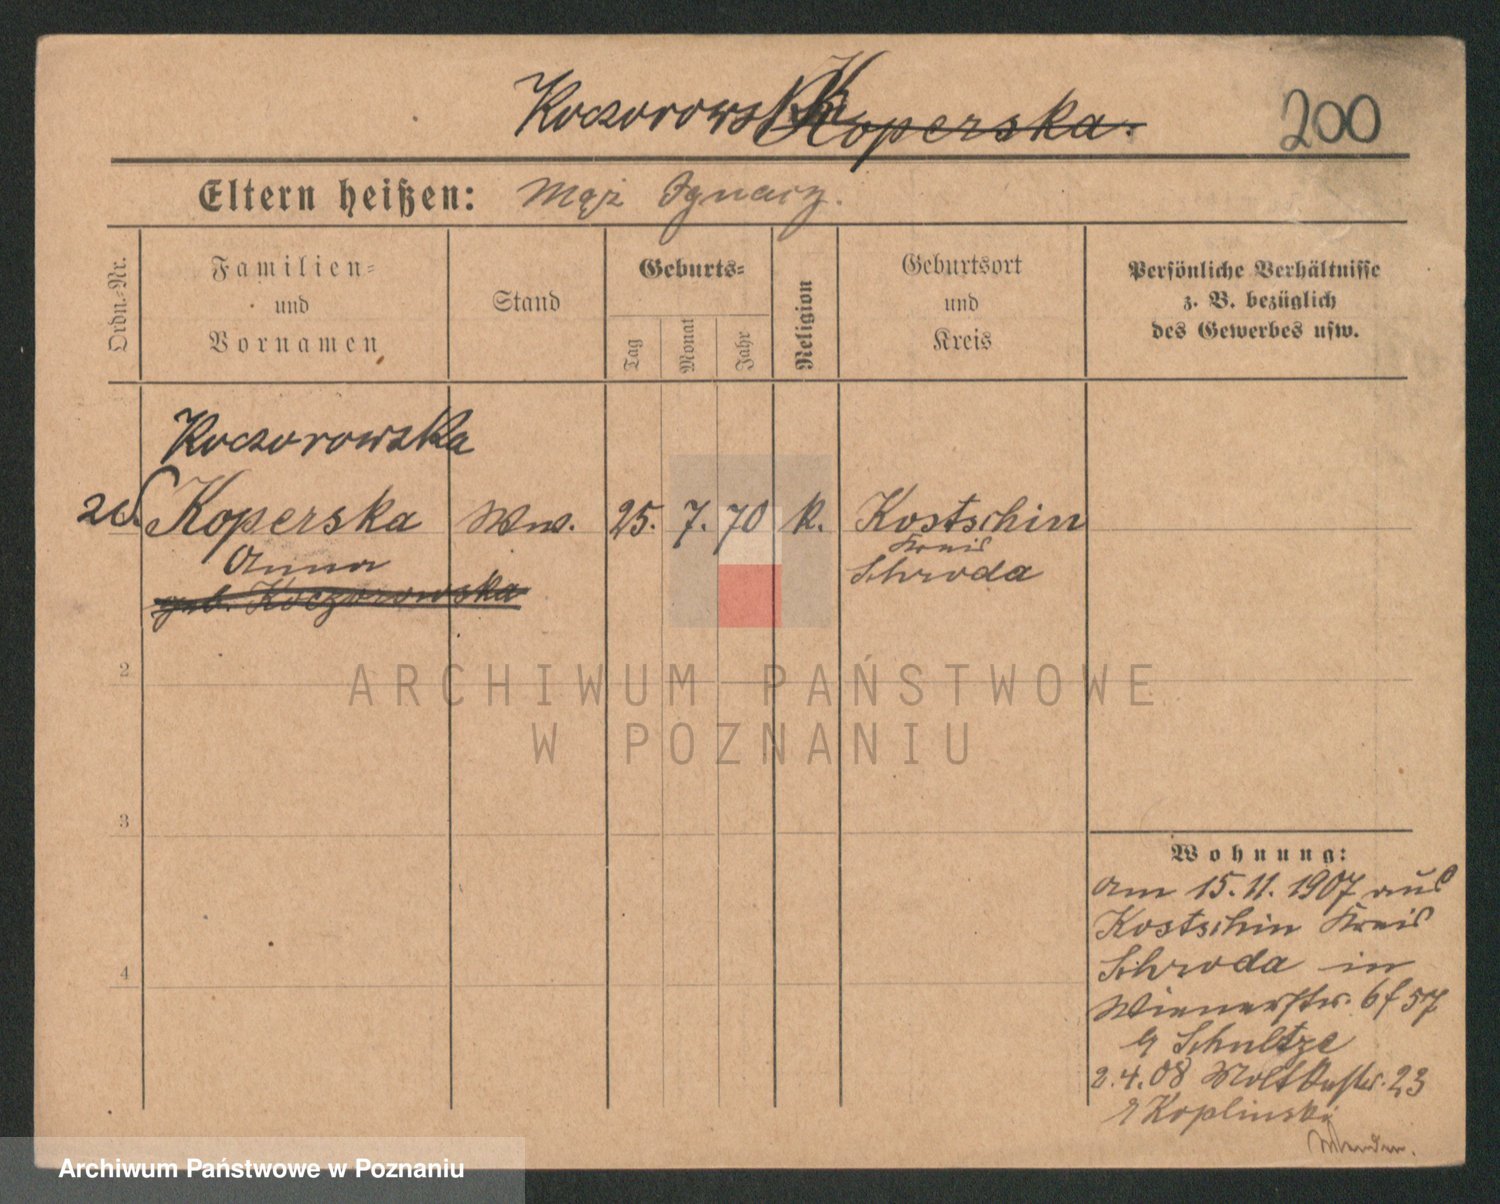 Koczorowska Koperska. 200
Eltern heißen: Mąż Ignacy.
Ordn.-Nr.
Familien-
und
Vornamen
Stand
Geburts-
Tag
Monat
Jahr
Religion
Geburtsort
und
Kreis
Persönliche Verhältnisse
z. B. bezüglich
des Gewerbes usw.
Koczorowska
Koperska Ww. 25. 7. 70 k. Kostschin
Anna Kreis
geb. Koczorowska Schroda
2
ARCHIWUM PAŃSTWOWE
W POZNANIU
3
Wohnung:
Am 15. 11. 1907 aus
Kostschin Kreis
Schroda in
Wienerstr. 57
Schultze
2. 4. 08 Moltkestr. 23
Koplinski
4
Archiwum Państwowe w Poznaniu